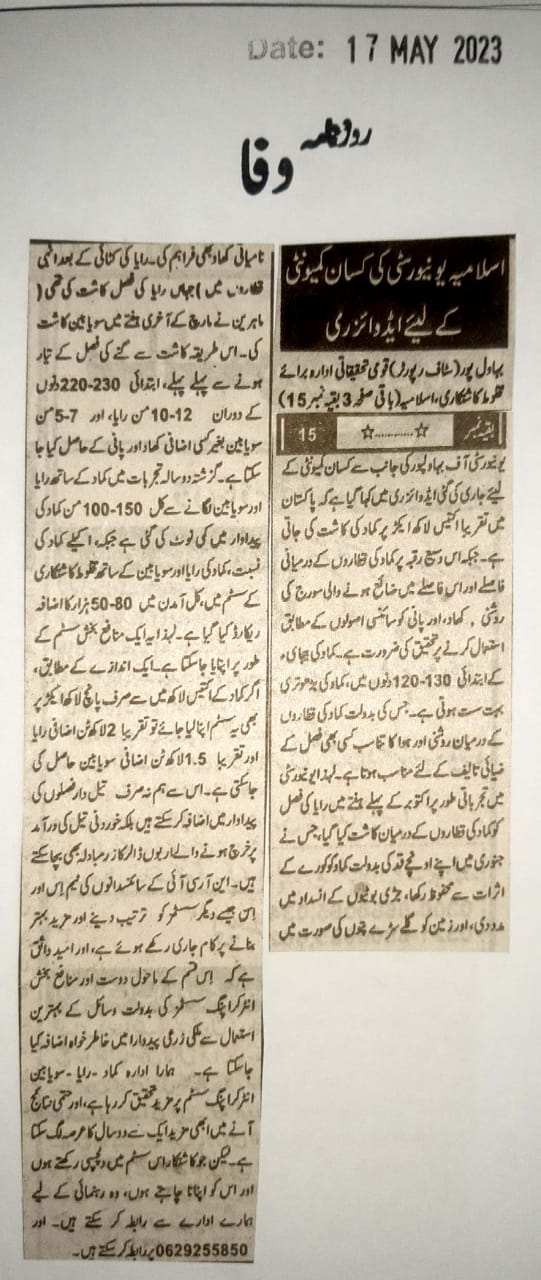 Date: 17 MAY 2023
روزنامہ
وفا
اسلامیہ یونیورسٹی کی کسان کمیونٹی
کے لیئے ایڈوائزری
بہاول پور (سٹاف رپورٹر) قومی تحقیقاتی ادارہ برائے
مخلوط کاشتکاری، اسلامیہ (باقی صفحہ 3 بقیہ نمبر 15)
بقیہ نمبر ☆............☆ 15
یونیورسٹی آف بہاولپور کی جانب سے کسان کمیونٹی کے
لیئے جاری کی گئی ایڈوائزری میں کہا گیا ہے کہ پاکستان
میں تقریبا اکتیس لاکھ ایکڑ پر کماد کی کاشت کی جاتی
ہے۔ جبکہ اس وسیع رقبہ پر کماد کی قطاروں کے درمیانی
فاصلے اور اس فاصلے میں ضائع ہونے والی سورج کی
روشنی , کھاد، اور پانی کو سائنسی اصولوں کے مطابق
استعمال کرنے پر تحقیق کی ضرورت ہے۔ کماد کی بیجائی،
کے ابتدائی 130-120 دنوں میں، کماد کی بڑھوتری
بہت سست ہوتی ہے۔ جس کی بدولت کماد کی قطاروں
کے درمیان روشنی اور ہوا کا تناسب کسی بھی فصل کے
ضیائی تالیف کے لئے مناسب ہوتا ہے۔ لہذا یونیورسٹی
میں تجرباتی طور پر اکتوبر کے پہلے ہفتے میں رایا کی فصل
کو کماد کی قطاروں کے درمیان کاشت کیا گیا، جس نے
جنوری میں اپنے اونچے قد کی بدولت کماد کو کورے کے
اثرات سے محفوظ رکھا، جڑی بوٹیوں کے انسداد میں
مدد دی، اور زمین کو گلے سڑے پتوں کی صورت میں
نامیاتی کھاد بھی فراہم کی۔ رایا کی کٹائی کے بعد انہی
قطاروں میں (جہاں رایا کی فصل کاشت کی تھی)
ماہرین نے مارچ کے آخری ہفتے میں سویابین کاشت
کی۔ اس طریقہ کاشت سے گنے کی فصل کے تیار
ہونے سے پہلے پہلے، ابتدائی 230-220 دنوں
کے دوران 12-10 من رایا، اور 7-5 من
سویابین بغیر کسی اضافی کھاد اور پانی کے حاصل کیا جا
سکتا ہے۔ گزشتہ دو سالہ تجربات میں کماد کے ساتھ رایا
اور سویابین لگانے سے کل 150-100 من کماد کی
پیداوار میں کمی نوٹ کی گئی ہے جبکہ، اکیلے کماد کی
نسبت، کماد کی رایا اور سویابین کے ساتھ مخلوط کاشتکاری
کے سسٹم میں، کل آمدن میں 80-50 ہزار کا اضافہ
ریکارڈ کیا گیا ہے۔ لہذا یہ ایک منافع بخش سسٹم کے
طور پر اپنایا جا سکتا ہے۔ ایک اندازے کے مطابق،
اگر کماد کے اکتیس لاکھ میں سے صرف پانچ لاکھ ایکڑ پر
بھی یہ سسٹم اپنا لیا جائے تو تقریبا 2 لاکھ ٹن اضافی رایا
اور تقریبا 1.5 لاکھ ٹن اضافی سویابین حاصل کی
جا سکتی ہے۔ اس سے ہم نہ صرف تیل دار فصلوں کی
پیداوار میں اضافہ کر سکتے ہیں بلکہ خوردنی تیل کی درآمد
پر خرچ ہونے والے اربوں ڈالر کا زر مبادلہ بھی بچا سکتے
ہیں۔ این آر سی آئی کے سائنسدانوں کی ٹیم اِس اور
اِس جیسے دیگر سسٹمز کو ترتیب دینے اور مزید بہتر
بنانے پر کام جاری رکھے ہوئے ہے، اور امید واثق
ہے کہ اِس قسم کے ماحول دوست اور منافع بخش
انٹرکراپنگ سسٹمز کی بدولت وسائل کے بہترین
استعمال سے ملکی زرعی پیداوار میں خاطر خواہ اضافہ کیا
جا سکتا ہے۔ ہمارا ادارہ کماد - رایا - سویابین
انٹرکراپنگ سسٹم پر مزید تحقیق کر رہا ہے، اور حتمی نتائج
آنے میں ابھی مزید ایک سے دو سال کا عرصہ لگ سکتا
ہے۔ لیکن جو کاشتکار اس سسٹم میں دلچسپی رکھتے ہوں
اور اس کو اپنانا چاہتے ہوں، وہ رہنمائی کے لیے
ہمارے ادارے سے رابطہ کر سکتے ہیں۔ اور
0629255850 پر رابطہ کر سکتے ہیں۔